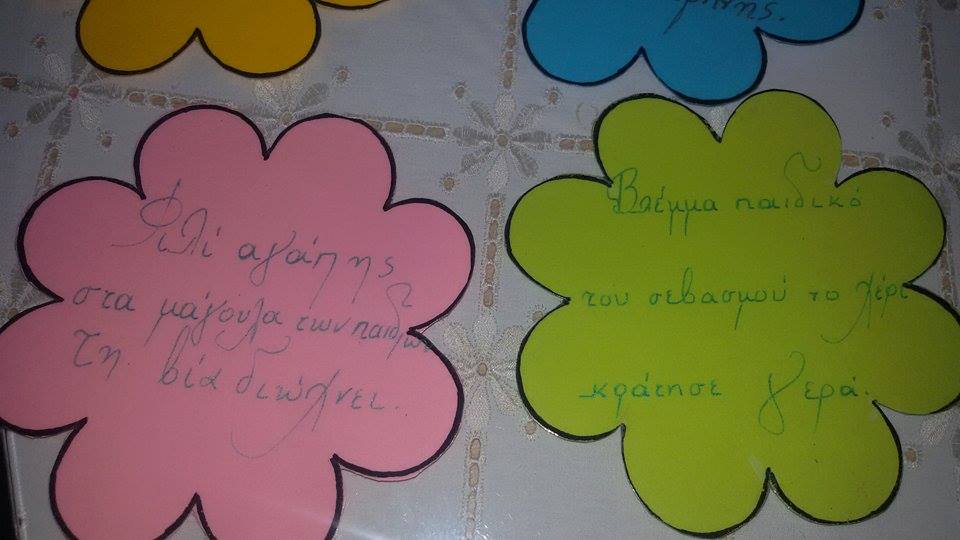 Φιλί αγάπης
στα μάγουλα των παιδιών
τη βία διώχνει.
Βλέμμα παιδικό
του σεβασμού το χέρι
κράτησε γερά.